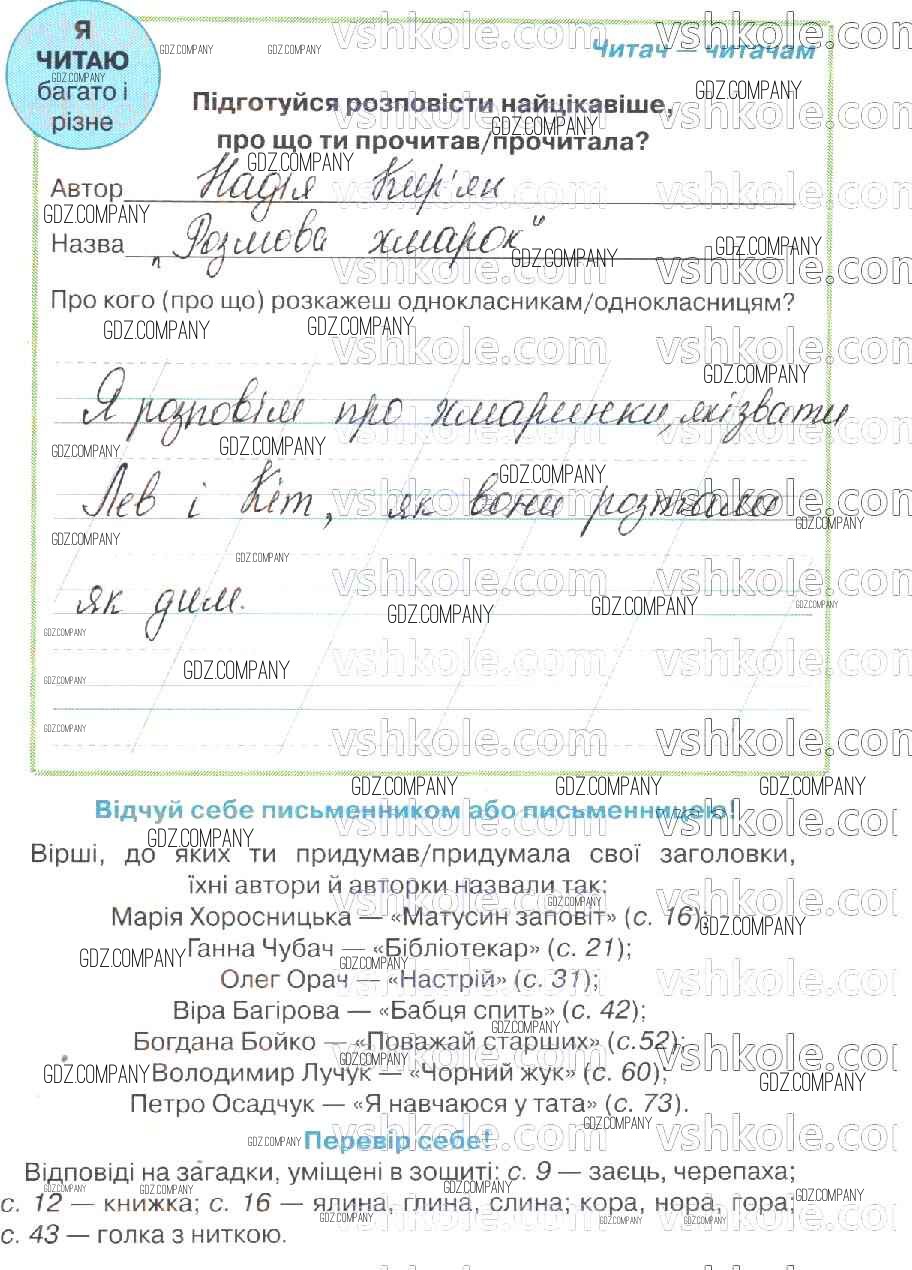 Я
ЧИТАЮ
багато і
різне
Читач — читачам
Підготуйся розповісти найцікавіше,
про що ти прочитав/прочитала?
Автор Надія Кир'ян
Назва „Розмова хмарок"
Про кого (про що) розкажеш однокласникам/однокласницям?
Я розповім про хмаринки, які звати
Лев і Кіт, як вони розтали
як дим.
Відчуй себе письменником або письменницею!
Вірші, до яких ти придумав/придумала свої заголовки,
їхні автори й авторки назвали так:
Марія Хоросницька — «Матусин заповіт» (с. 16);
Ганна Чубач — «Бібліотекар» (с. 21);
Олег Орач — «Настрій» (с. 31);
Віра Багірова — «Бабця спить» (с. 42);
Богдана Бойко — «Поважай старших» (с.52);
Володимир Лучук — «Чорний жук» (с. 60);
Петро Осадчук — «Я навчаюся у тата» (с. 73).
Перевір себе!
Відповіді на загадки, уміщені в зошиті: с. 9 — заєць, черепаха;
с. 12 — книжка; с. 16 — ялина, глина, слина; кора, нора, гора;
с. 43 — голка з ниткою.
GDZ.COMPANY
vshkole.com